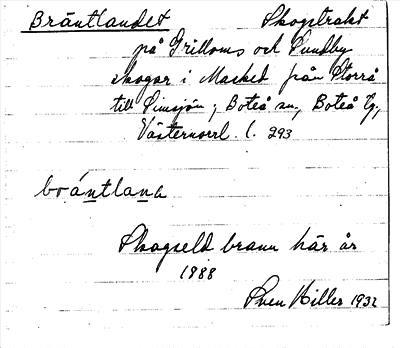 Bräntlandet Skogstrakt
på Grilloms och Sundby
skogar i Masked från Storrå
till Simsjön; Boteå sn, Boteå tg,
Västernorrl. l. 293
bräntlana
Skogseld brann här år
1888
Sven Hiller 1932